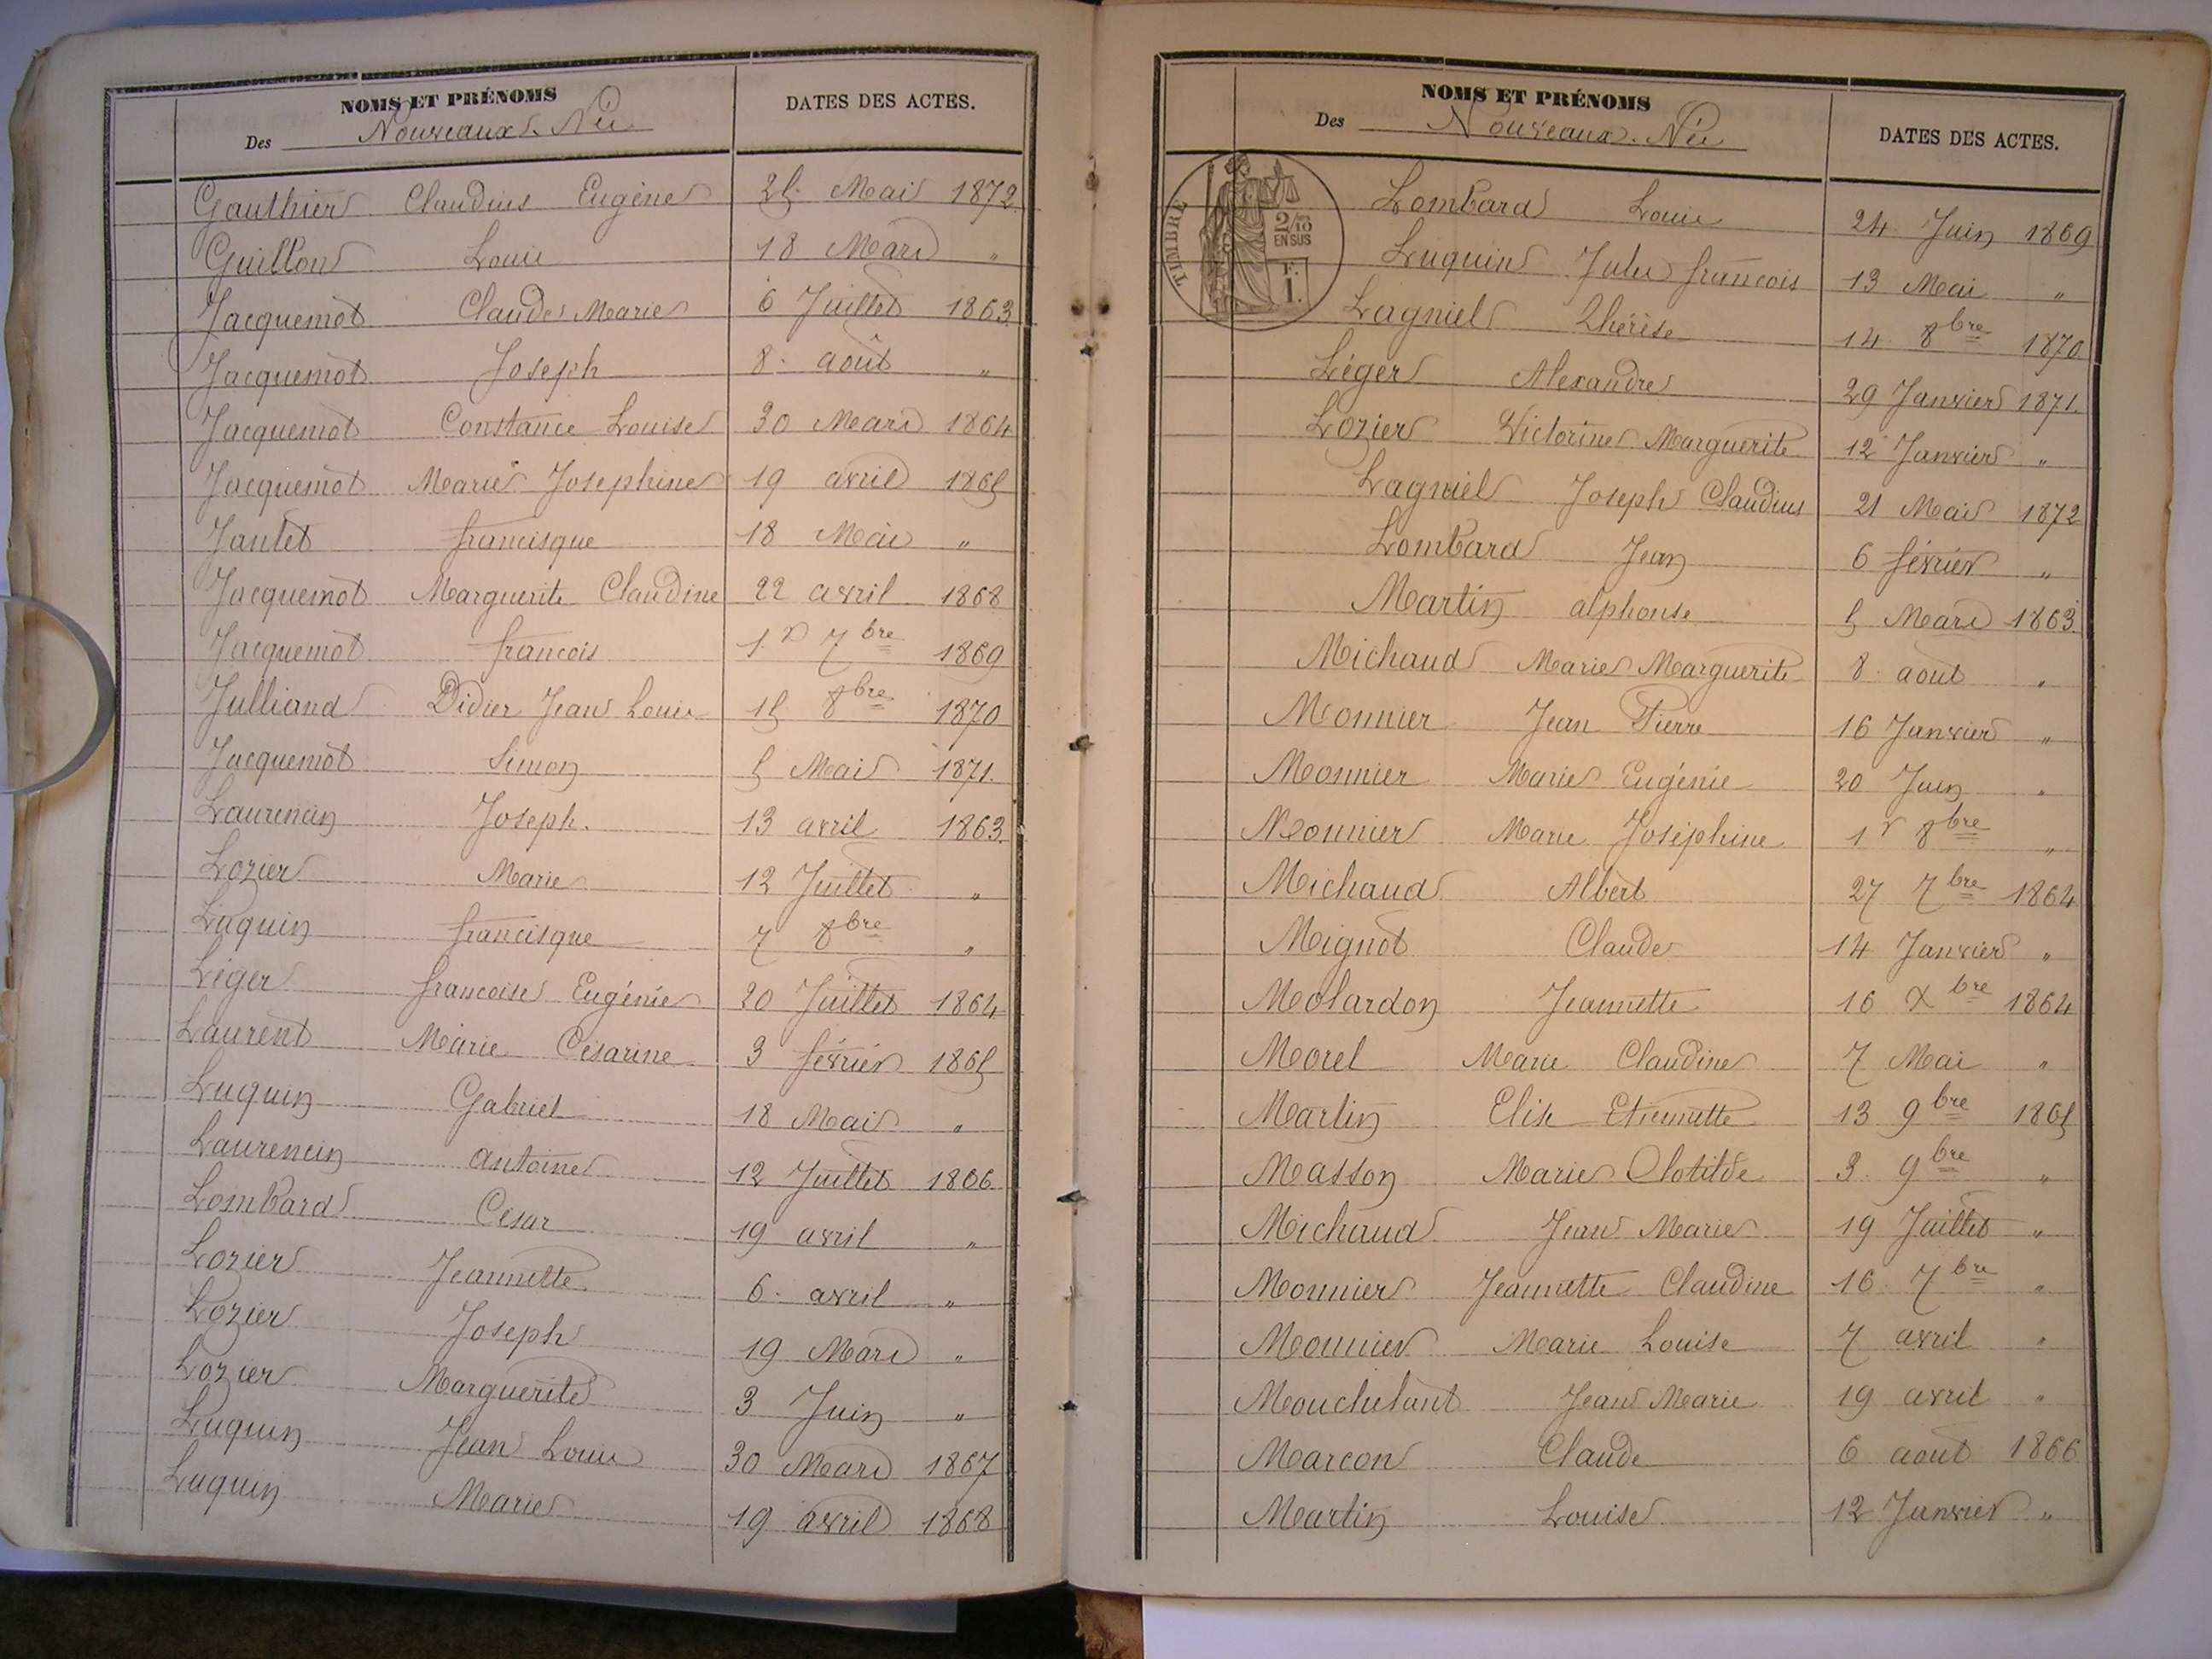 NOMS ET PRÉNOMS
Des Nouveaux-Nés
DATES DES ACTES.
Gauthier Claudius Eugène 25 Mai 1872
Guillon Louis 18 Mars "
Jacquemot Claude Marie 6 Juillet 1863
Jacquemot Joseph 8 août "
Jacquemot Constance Louise 30 Mars 1864
Jacquemot Marie Josephine 19 avril 1865
Jantet francisque 18 Mai "
Jacquemot Marguerite Claudine 22 avril 1868
Jacquemot francois 1er 7bre 1869
Julliand Didier Jean Louis 15 8bre 1870
Jacquemot Simon 5 Mai 1871.
Laurencin Joseph. 13 avril 1863.
Lozier Marie 12 Juillet "
Luquin francisque 7 8bre "
Léger francoise Eugénie 20 Juillet 1864
Laurent Marie Césarine 3 février 1865
Luquin Gabriel 18 Mai "
Laurencin antoine 12 Juillet 1866
Lombard César 19 avril "
Lozier Jeannette 6 avril "
Lozier Joseph 19 Mars "
Lozier Marguerite 3 Juin "
Luquin Jean Louis 30 Mars 1867
Luquin Marie 19 avril 1868
NOMS ET PRÉNOMS
Des Nouveaux-Nés
DATES DES ACTES.
TIMBRE
2/10
EN SUS
F.
1.
Lombard Louis 24 Juin 1869
Luquin Jules francois 13 Mai "
Lagniel Thérèse 14 8bre 1870
Léger Alexandre 29 Janvier 1871.
Lozier Victorine Marguerite 12 Janvier "
Lagniel Joseph Claudius 21 Mai 1872
Lombard Jean 6 février "
Martin alphonse 5 Mars 1863
Michaud Marie Marguerite 8 août "
Monnier Jean Pierre 16 Janvier "
Monnier Marie Eugénie 20 Juin "
Monnier Marie Joséphine 1r 8bre "
Michaud Albert 27 7bre 1864
Mignot Claude 14 Janvier "
Molardon Jeannette 16 Xbre 1864
Morel Marie Claudine 7 Mai "
Martin Elise Etiennette 13 9bre 1865
Masson Marie Clotilde 3 9bre "
Michaud Jean Marie 19 Juillet "
Monnier Jeannette Claudine 16 7bre "
Monnier Marie Louise 7 avril "
Mouchetant Jean Marie 19 avril "
Marcon Claude 6 août 1866
Martin Louise 12 Janvier "